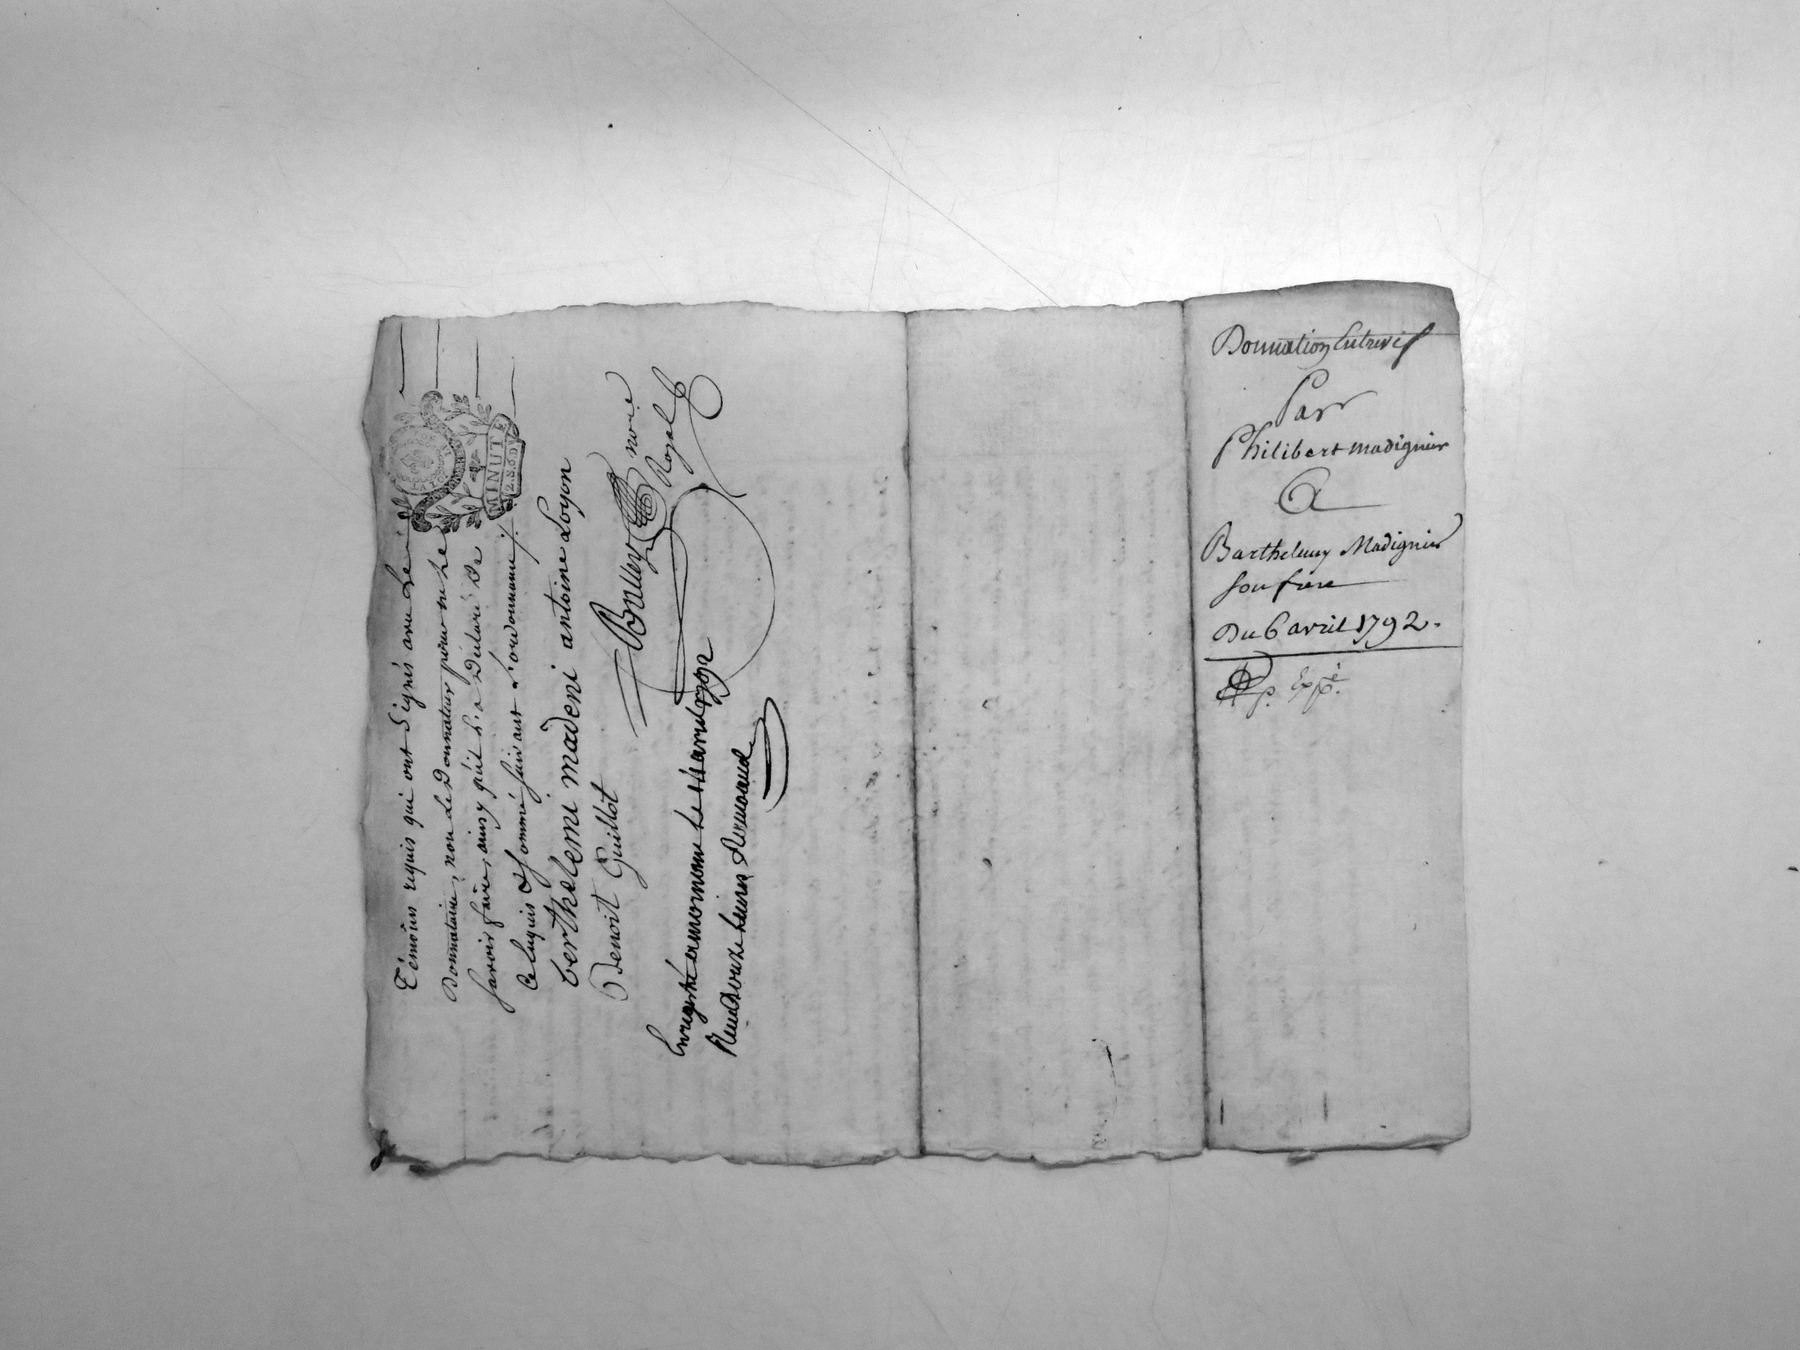 Témoins requis qui ont Signés avec Le
Donnataire, non Le Donnateur pour ne Le
Savoir faire, ainsy qu'il L'a Déclaré De
Ce Enquis & Sommé suivant L'ordonnance ./.
berthelemi madeni antoine Loyon
Benoit Guillot
Bruley no.re
Royal
Enregistré
Reçu douze livres
MINUTE
2.S.6D.
Donnation Entrevifs
Par
Philibert madignier
A
Barthelemy Madignier
Son frere
Du 6 avril 1792.
Exp.é